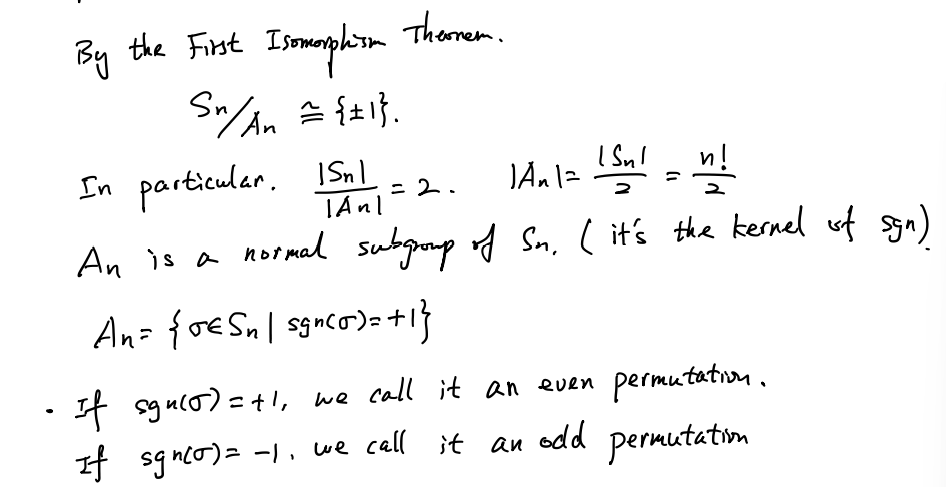 By the First Isomorphism Theorem.
Sn/An ≅ {±1}.
In particular. |Sn|/|An| = 2. |An| = |Sn|/2 = n!/2
An is a normal subgroup of Sn. (it's the kernel of sgn).
An = {σ∈Sn | sgn(σ)=+1}
· If sgn(σ)=+1, we call it an even permutation.
If sgn(σ)= -1, we call it an odd permutation